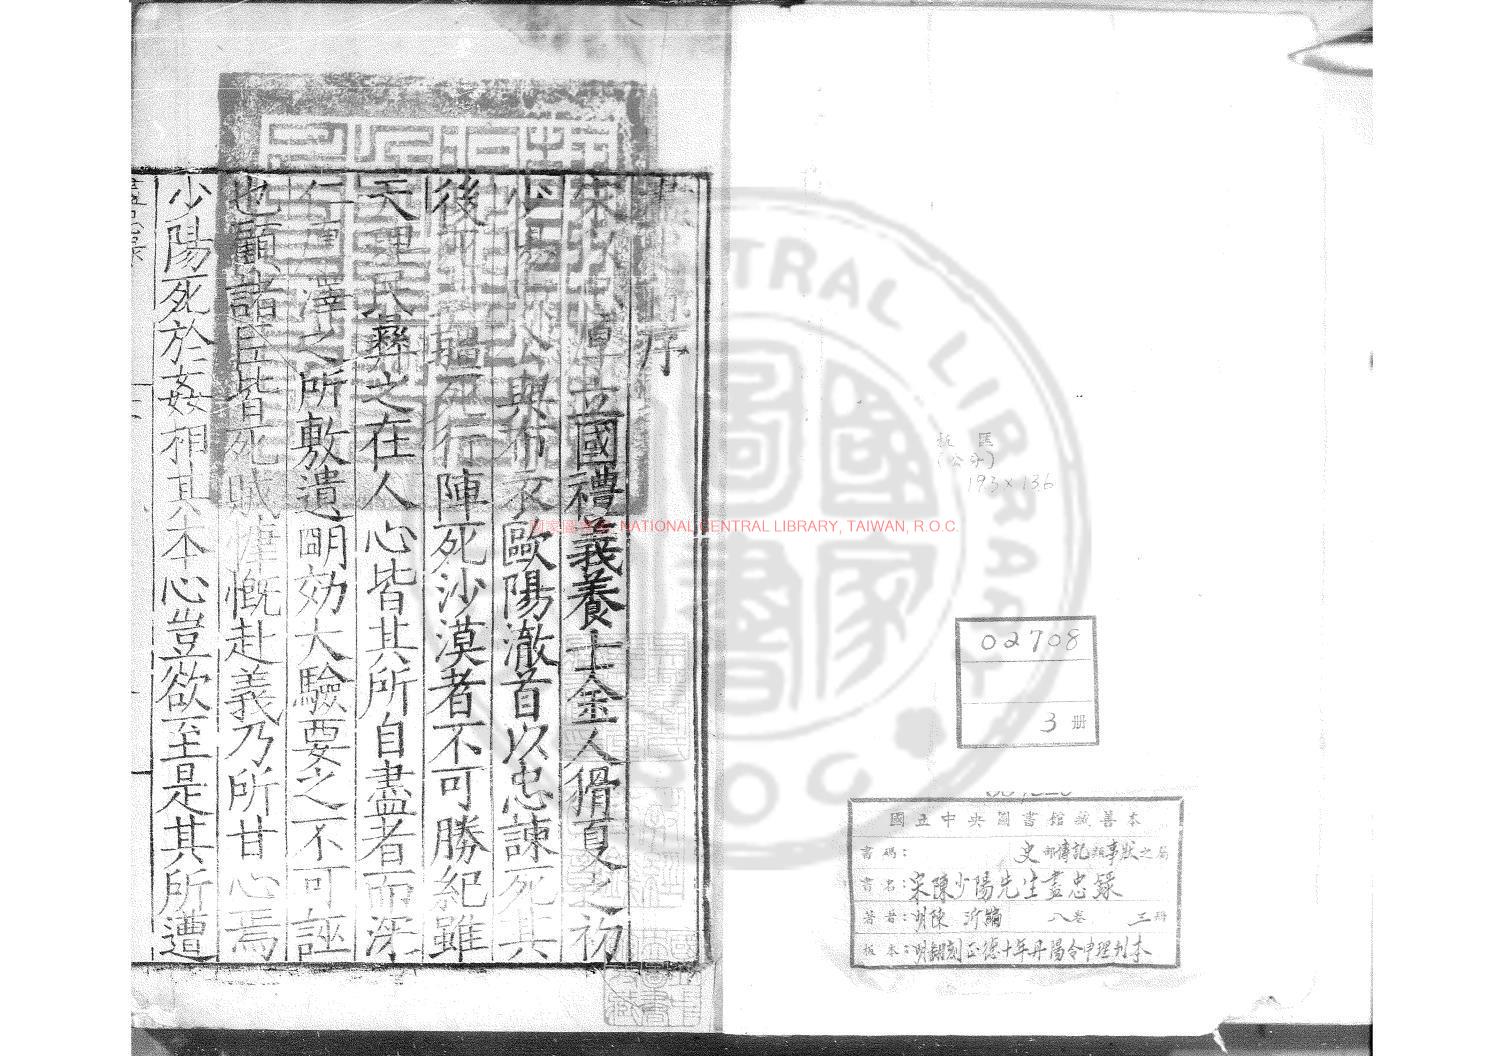 序
宋 立國禮義養士金人猾夏之初
少陽 公與布衣歐陽澈首以忠諫死其
後死 疆死行陣死沙漠者不可勝紀雖
天理民彝之在人心皆其所自盡者而深
仁 澤之所敷遺明効大驗要之不可誣
也顧諸臣皆死賊慷慨赴義乃所甘心焉
少陽死於姦相其本心豈欲至是其所遭
板匡
(公分)
193×136
02708
3 册
國立中央圖書館藏善本
書碼: 史部傳記類事狀之屬
書名:宋陳少陽先生盡忠錄
著者:明陳沂編 八卷 三冊
板本:明翻刻正德十年丹陽令申理刊本
國家圖書館 NATIONAL CENTRAL LIBRARY, TAIWAN, R.O.C.